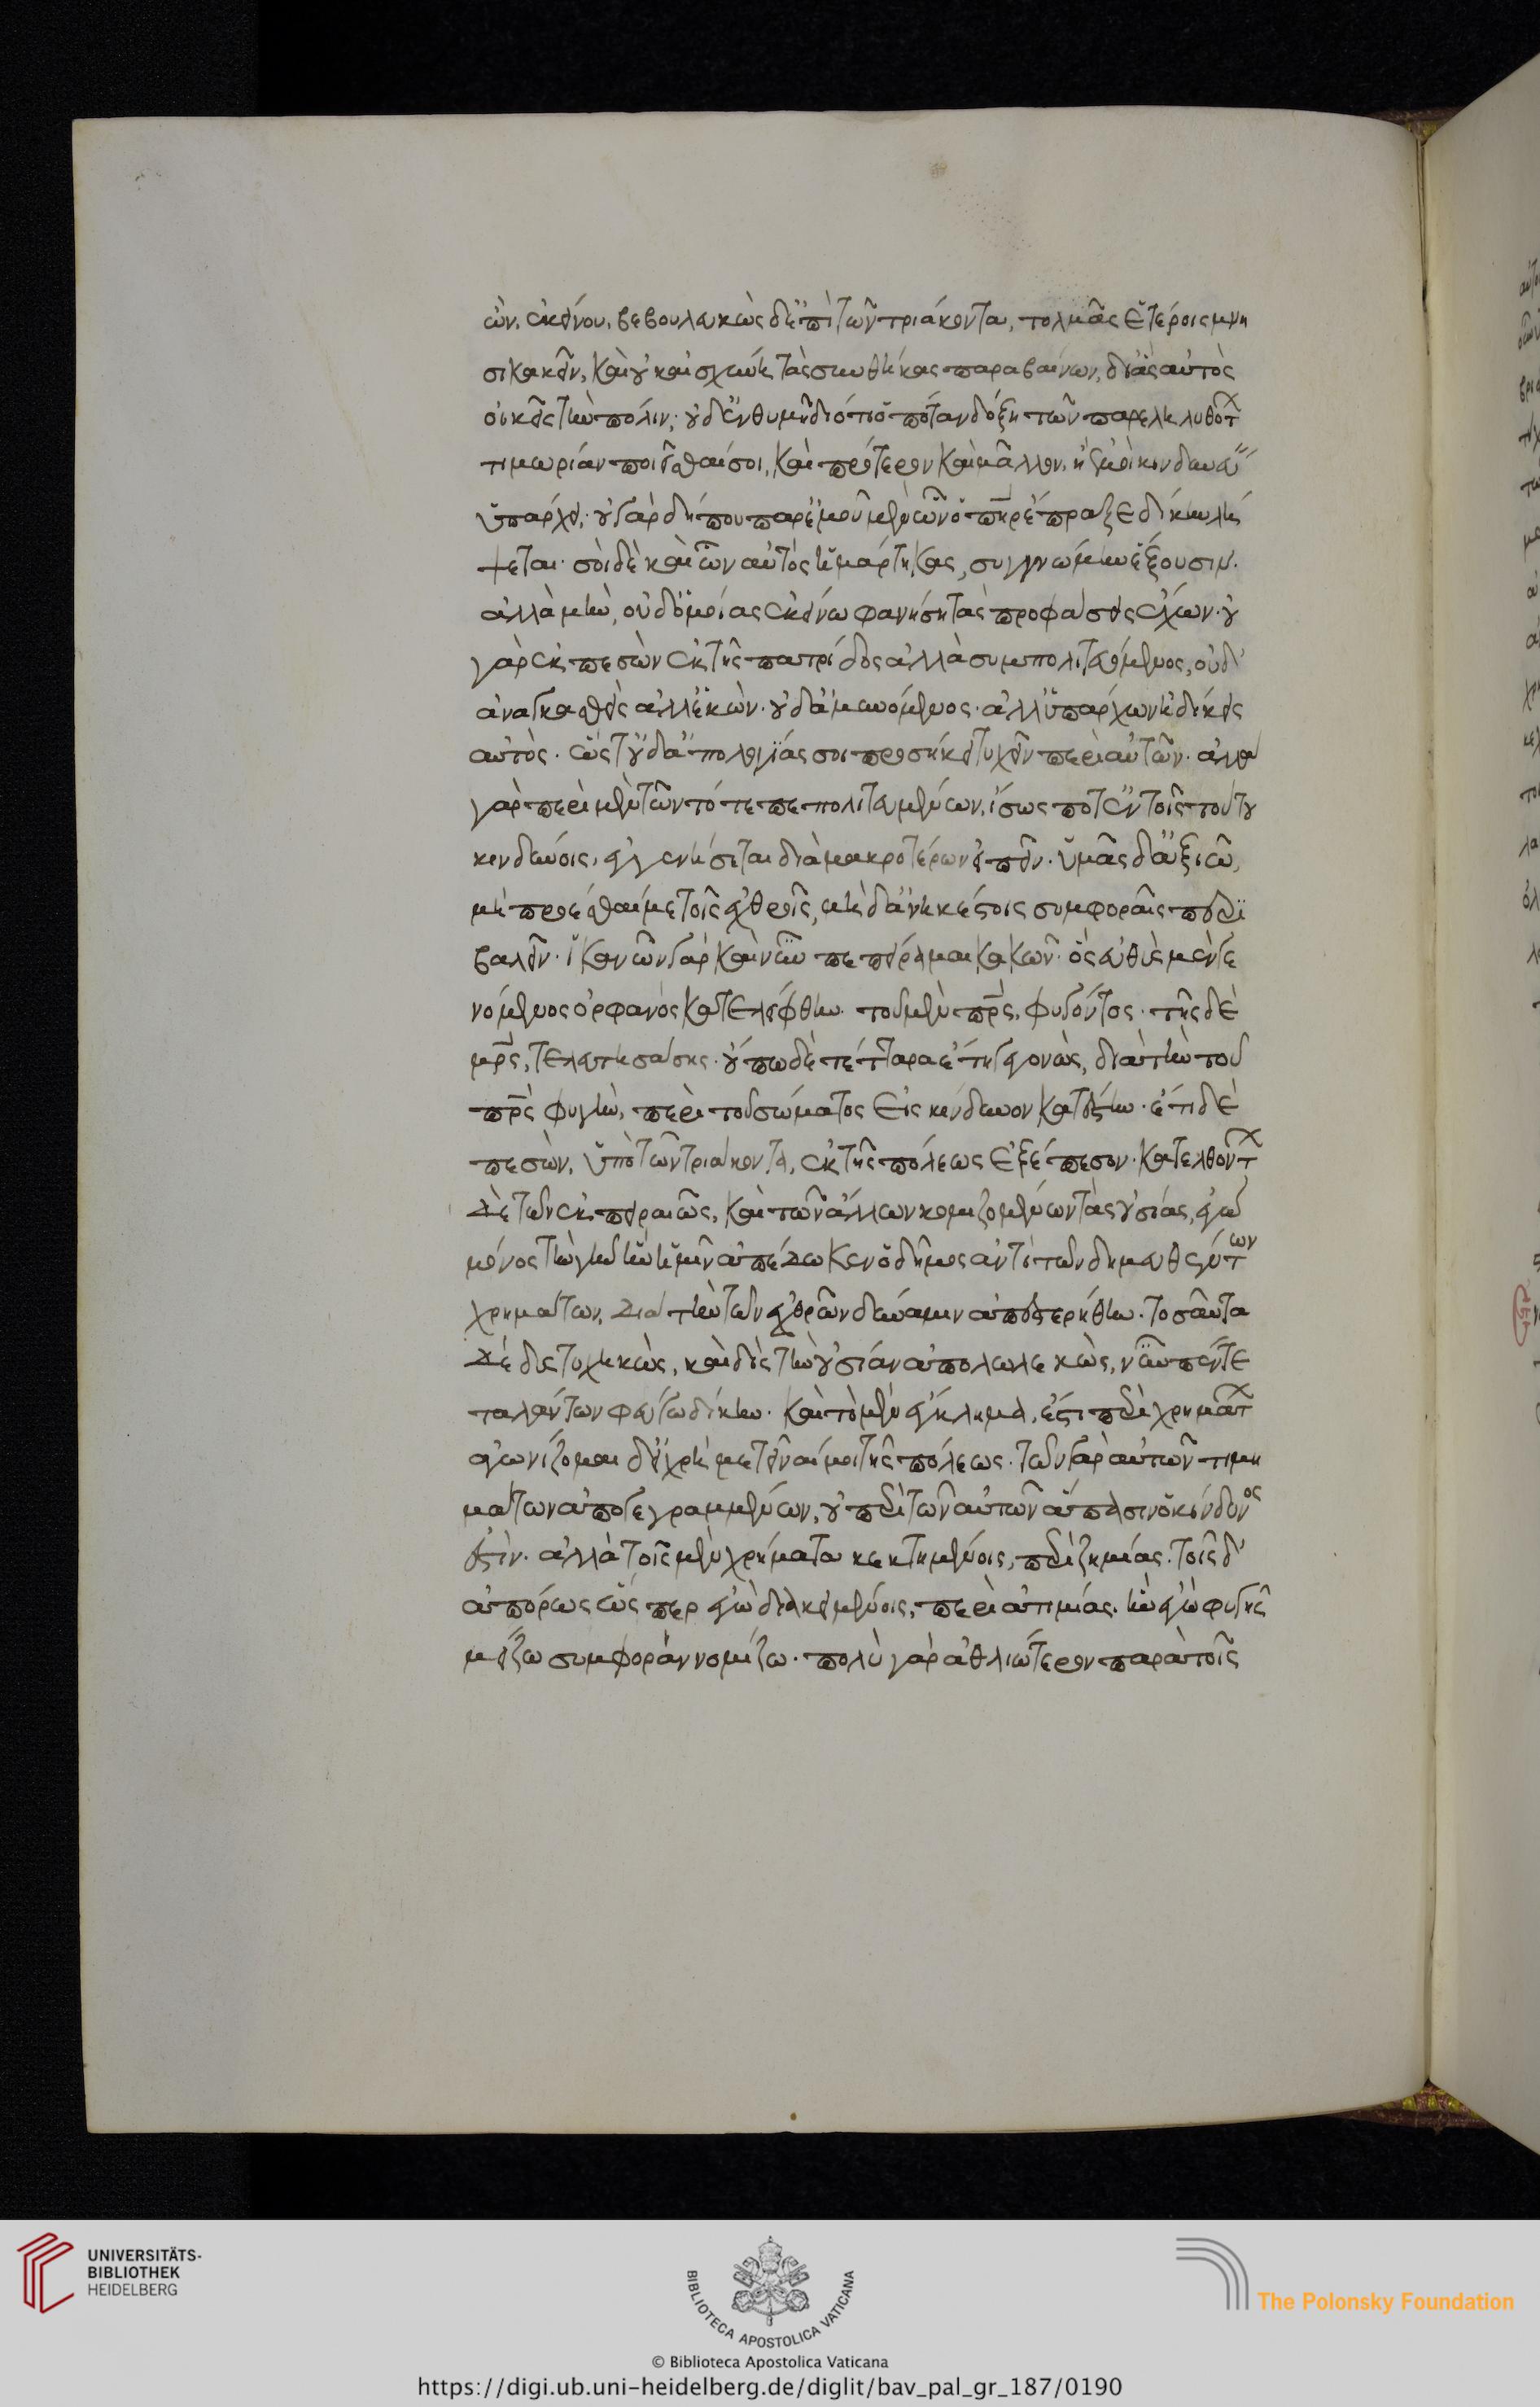 ὢν ἐκείνου, βεβουλευκὼς δ' ἐπὶ τῶν τριάκοντα, τολμᾷς ἑτέροις μνη
σικακεῖν, καὶ οὐκ αἰσχύνη τὰς συνθήκας παραβαίνων, δι' ἃς αὐτὸς
οἰκεῖς τὴν πόλιν· οὐδ' ἐνθυμῆ διότι ὁπόταν δόξη τῶν παρεληλυθότων
τιμωρίαν ποιεῖσθαί σοι, καὶ πρότερον καὶ μᾶλλον, ἢ ἐμοὶ κινδυνεύειν
ὑπάρχει· οὐ γὰρ δήπου παρ' ἐμοῦ μὲν ὧν ὁ πηρ ἔπραξε δίκην λή
ψεται· σοὶ δὲ καὶ ὧν αὐτὸς ἡμάρτηκας, συγγνώμην ἕξουσιν.
ἀλλὰ μὴν, οὐδ' ὁμοίας ἐκείνω φανήση τὰς προφάσεις ἔχων· οὐ
γὰρ ἐκπεσὼν ἐκ τῆς πατρίδος ἀλλὰ συμπολιτευόμενος, οὐδ'
ἀναγκασθεὶς ἀλλ' ἑκών· οὐδ' ἀμυνόμενος· ἀλλ' ὑπάρχων ἠδίκεις
αὐτοὺς· ὥστ' οὐδ' ἀπολογίας σοι προσήκει τυχεῖν περὶ αὐτῶν· ἀλλὰ
γὰρ περὶ μὲν τῶν τότε πεπολιτευμένων, ἴσως ποτ' ἐν τοῖς τούτου
κινδύνοις, ἐγγενήσεται διὰ μακροτέρων εἰπεῖν· ὑμᾶς δ' ἀξιῶ,
μὴ προέσθαι με τοῖς ἐχθροῖς, μὴ δ' ἀνηκέστοις συμφοραῖς περι
βαλεῖν· ἱκανῶν γὰρ καὶ νῦν πεπείραμαι κακῶν· ὃς εὐθὺς μὲν γε
νόμενος ὀρφανὸς κατελείφθην· τοῦ μὲν πρς, φυγόντος· τῆς δὲ
μρς, τελευτησάσης· οὔπω δὲ τέτταρα ἔτη γεγονὼς, διὰ τὴν τοῦ
πρς φυγὴν, περὶ τοῦ σώματος εἰς κίνδυνον κατέστην· ἔτι δὲ
πεσὼν, ὑπὸ τῶν τριάκοντα, ἐκ τῆς πόλεως ἐξέπεσον· κατελθόντων
δὲ τῶν ἐκ πειραιῶς, καὶ τῶν ἄλλων κομιζομένων τὰς οὐσίας, ἐγὼ
μόνος τὴν γῆν ἣν ἡμῖν ἀπέδωκεν ὁ δῆμος ἀντὶ τῶν δημευθέντων
χρημάτων, διὰ τὴν τῶν ἐχθρῶν δύναμιν ἀπεστερήθην· τοσαῦτα
δὲ δυστυχηκὼς, καὶ δὶς τὴν οὐσίαν ἀπολωλεκὼς, νῦν πέντε
ταλάντων φεύγω δίκην· καὶ τὸ μὲν ἔγκλημά, ἐστι περὶ χρημάτων
ἀγωνίζομαι δ' εἰ χρὴ μετεῖναί μοι τῆς πόλεως· τῶν γὰρ αὐτῶν τιμη
μάτων ἀπογεγραμμένων, οὐ περὶ τῶν αὐτῶν ἅπασιν ὁ κίνδυνος
ἐστὶν· ἀλλὰ τοῖς μὲν χρήματα κεκτημένοις, περὶ ζημίας· τοῖς δ'
ἀπόρως ὥσπερ ἐγὼ διακειμένοις, περὶ ἀτιμίας· ἣν ἐγὼ φυγῆς
μείζω συμφορὰν νομίζω· πολὺ γὰρ ἀθλιώτερον παρὰ τοῖς
UNIVERSITÄTS-
BIBLIOTHEK
HEIDELBERG
BIBLIOTECA APOSTOLICA VATICANA
The Polonsky Foundation
© Biblioteca Apostolica Vaticana
https://digi.ub.uni-heidelberg.de/diglit/bav_pal_gr_187/0190